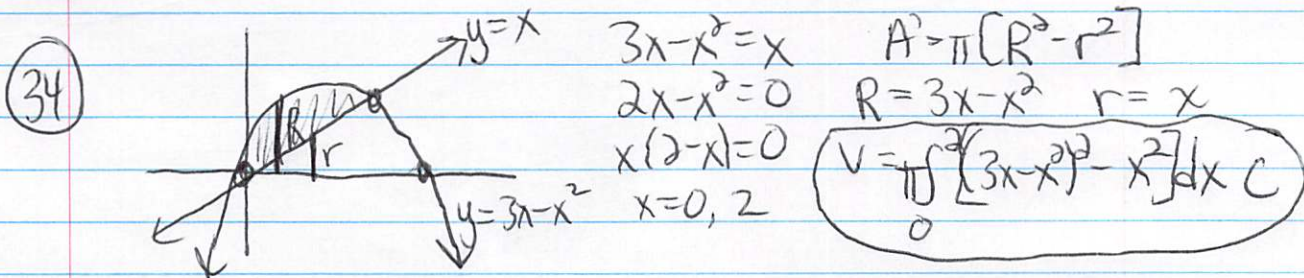 34
y=x
R
r
y=3x-x²
3x-x²=x
2x-x²=0
x(2-x)=0
x=0, 2
A=π[R²-r²]
R=3x-x² r=x
V=π∫₀²[(3x-x²)²-x²]dx C